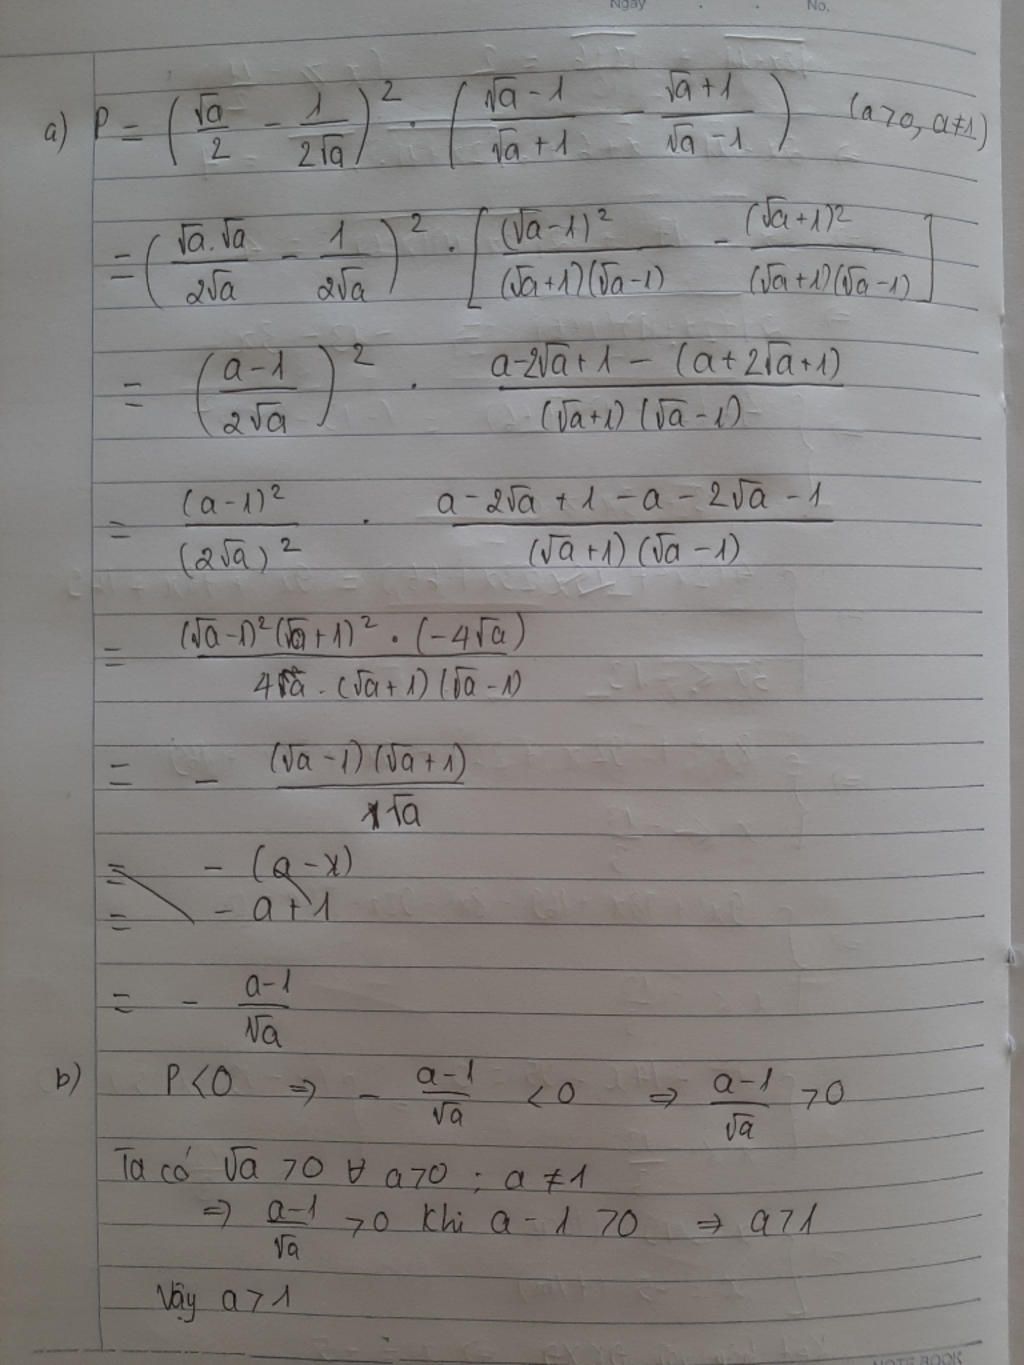 Ngày . . No.
a) P = (√a/2 − 1/(2√a))² . ((√a − 1)/(√a + 1) − (√a + 1)/(√a − 1)) (a > 0, a ≠ 1)
= (√a.√a/(2√a) − 1/(2√a))² . [(√a − 1)²/((√a + 1)(√a − 1)) − (√a + 1)²/((√a + 1)(√a − 1))]
= ((a − 1)/(2√a))² . (a − 2√a + 1 − (a + 2√a + 1))/((√a + 1)(√a − 1))
= (a − 1)²/(2√a)² . (a − 2√a + 1 − a − 2√a − 1)/((√a + 1)(√a − 1))
= ((√a − 1)²(√a + 1)² . (−4√a))/(4a . (√a + 1)(√a − 1))
= − ((√a − 1)(√a + 1))/√a
= − (a − 1)
= − a + 1
= − (a − 1)/√a
b) P < 0 ⇒ − (a − 1)/√a < 0 ⇒ (a − 1)/√a > 0
Ta có √a > 0 ∀ a > 0 ; a ≠ 1
⇒ (a − 1)/√a > 0 khi a − 1 > 0 ⇒ a > 1
Vậy a > 1